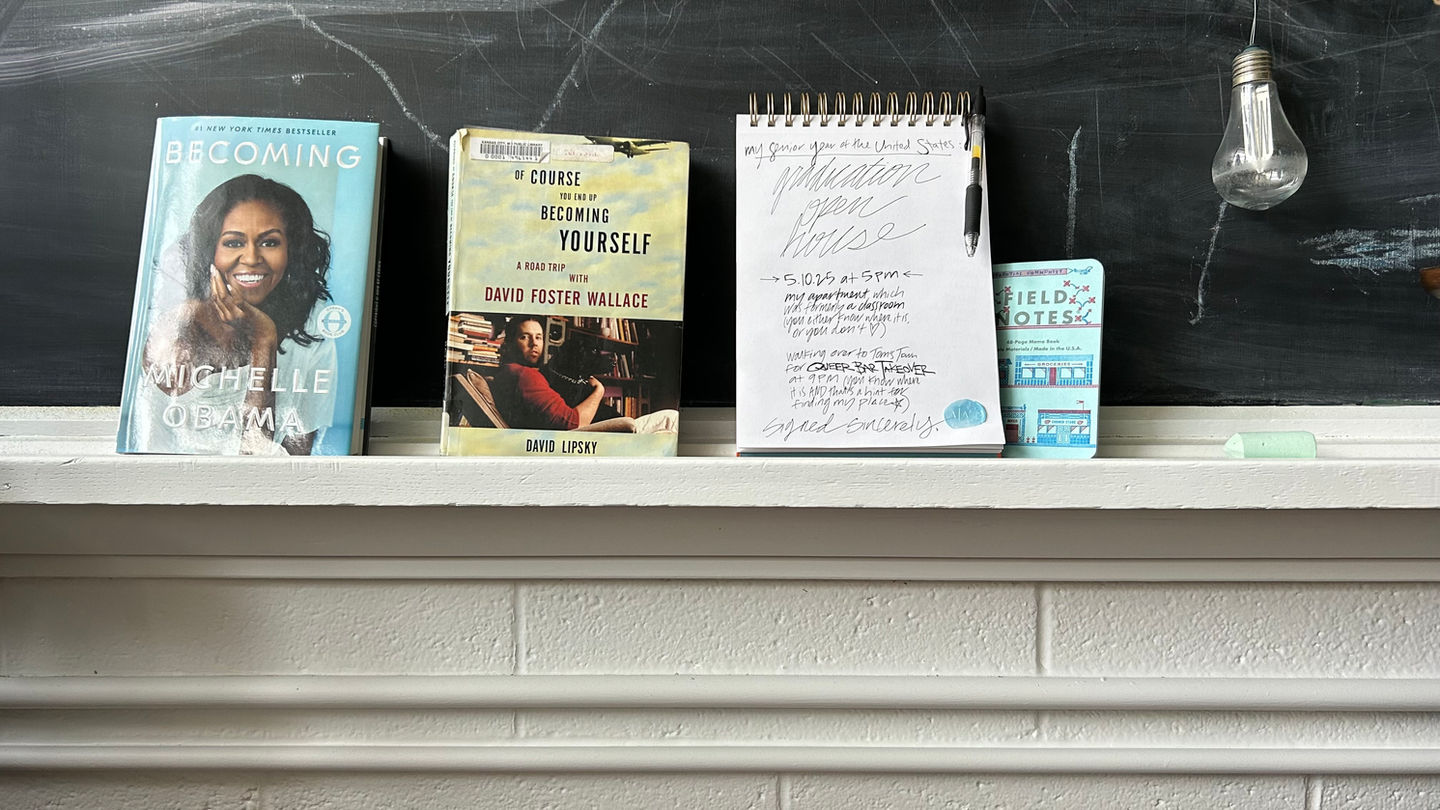 #1 NEW YORK TIMES BESTSELLER
BECOMING
MICHELLE
OBAMA
KANSAS CITY, MO PUBLIC LIBRARY
OF COURSE
YOU END UP
BECOMING
YOURSELF
A ROAD TRIP
WITH
DAVID FOSTER WALLACE
DAVID LIPSKY
my senior year of the United States:
graduation
open
house
→ 5.10.25 at 5pm ←
my apartment which
was formerly a classroom
(you either know where it is,
or you don't ♡)
walking over to Tom's Town
for QUEER BAR TAKEOVER
at 9PM (you know where
it is AND that's a hint for
finding my place ☆)
signed sincerely,
FIELD
NOTES
48-Page Memo Book
Materials / Made in the U.S.A.